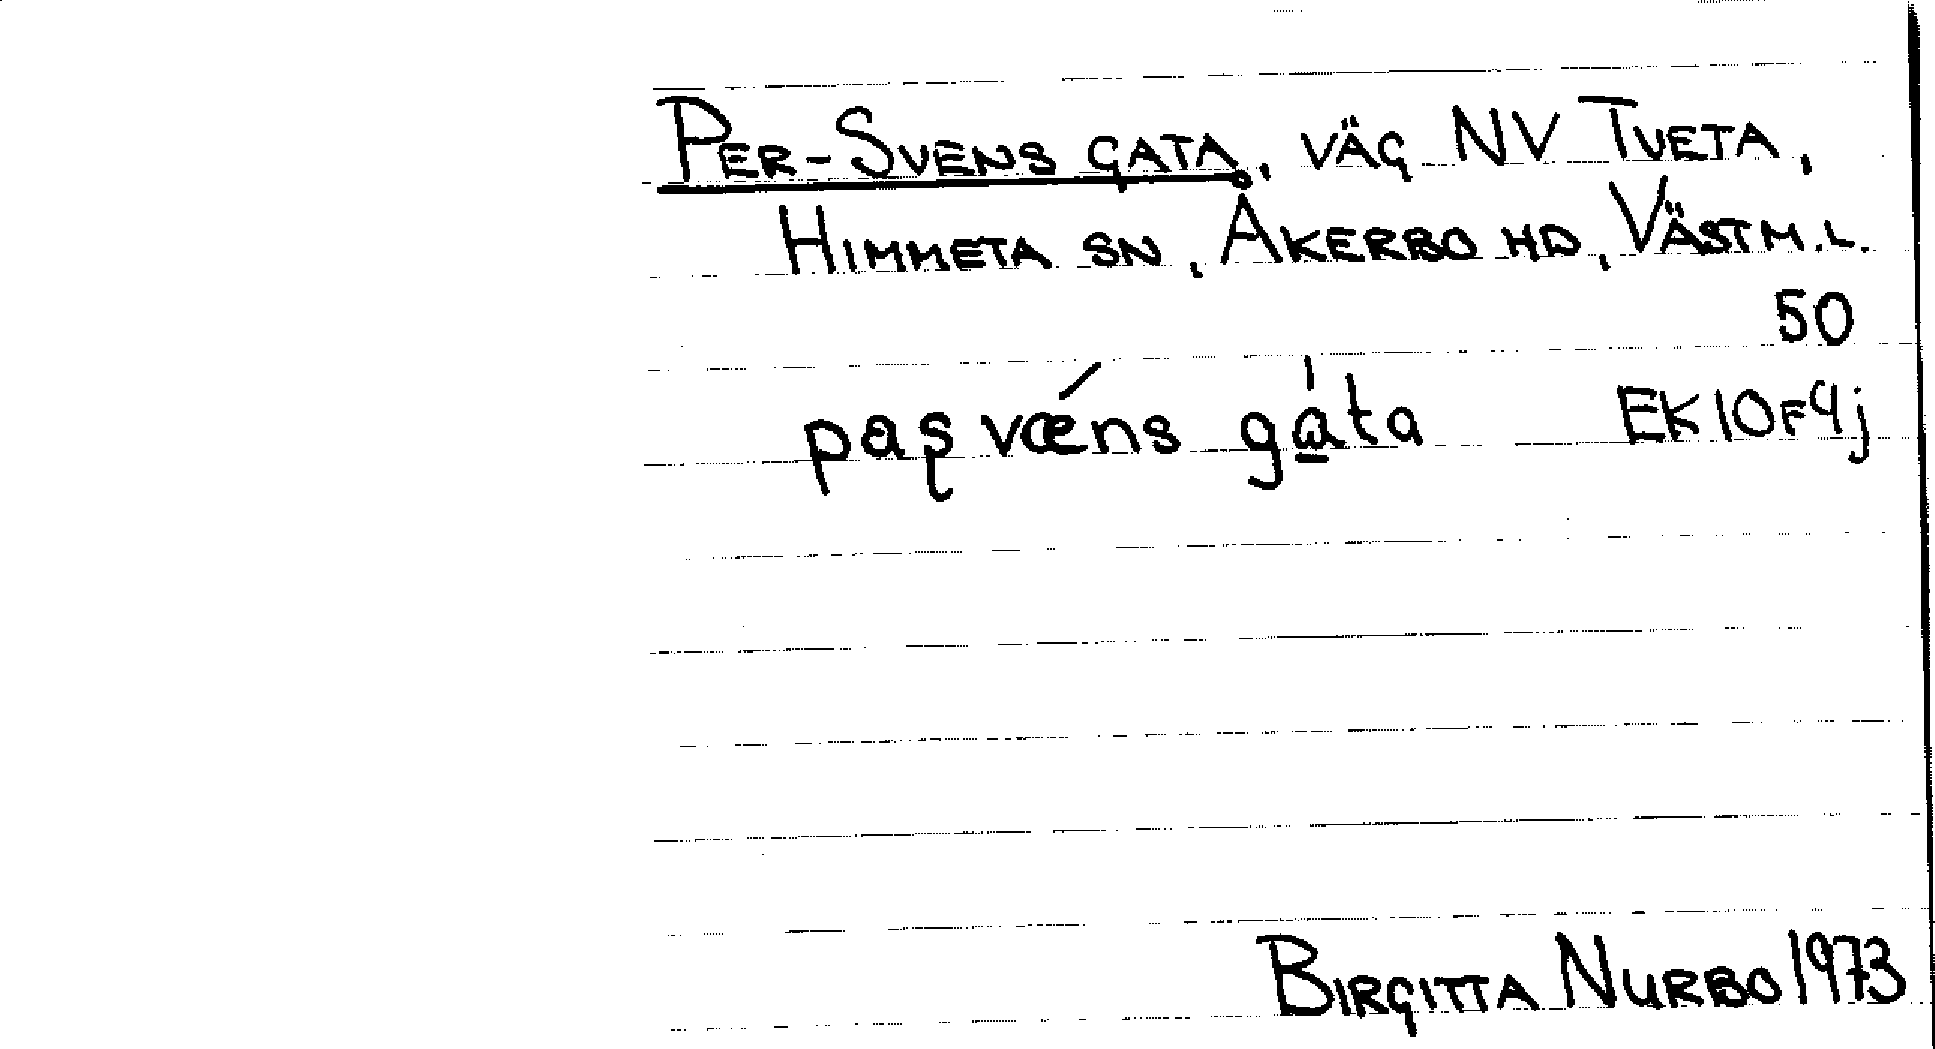 PER-SVENS GATA, VÄG NV TVETA,
HIMMETA SN, ÅKERBO HD, VÄSTM.L.
50
pașvǽns gȧ̱ta EK10F4j
BIRGITTA NURBO 1973